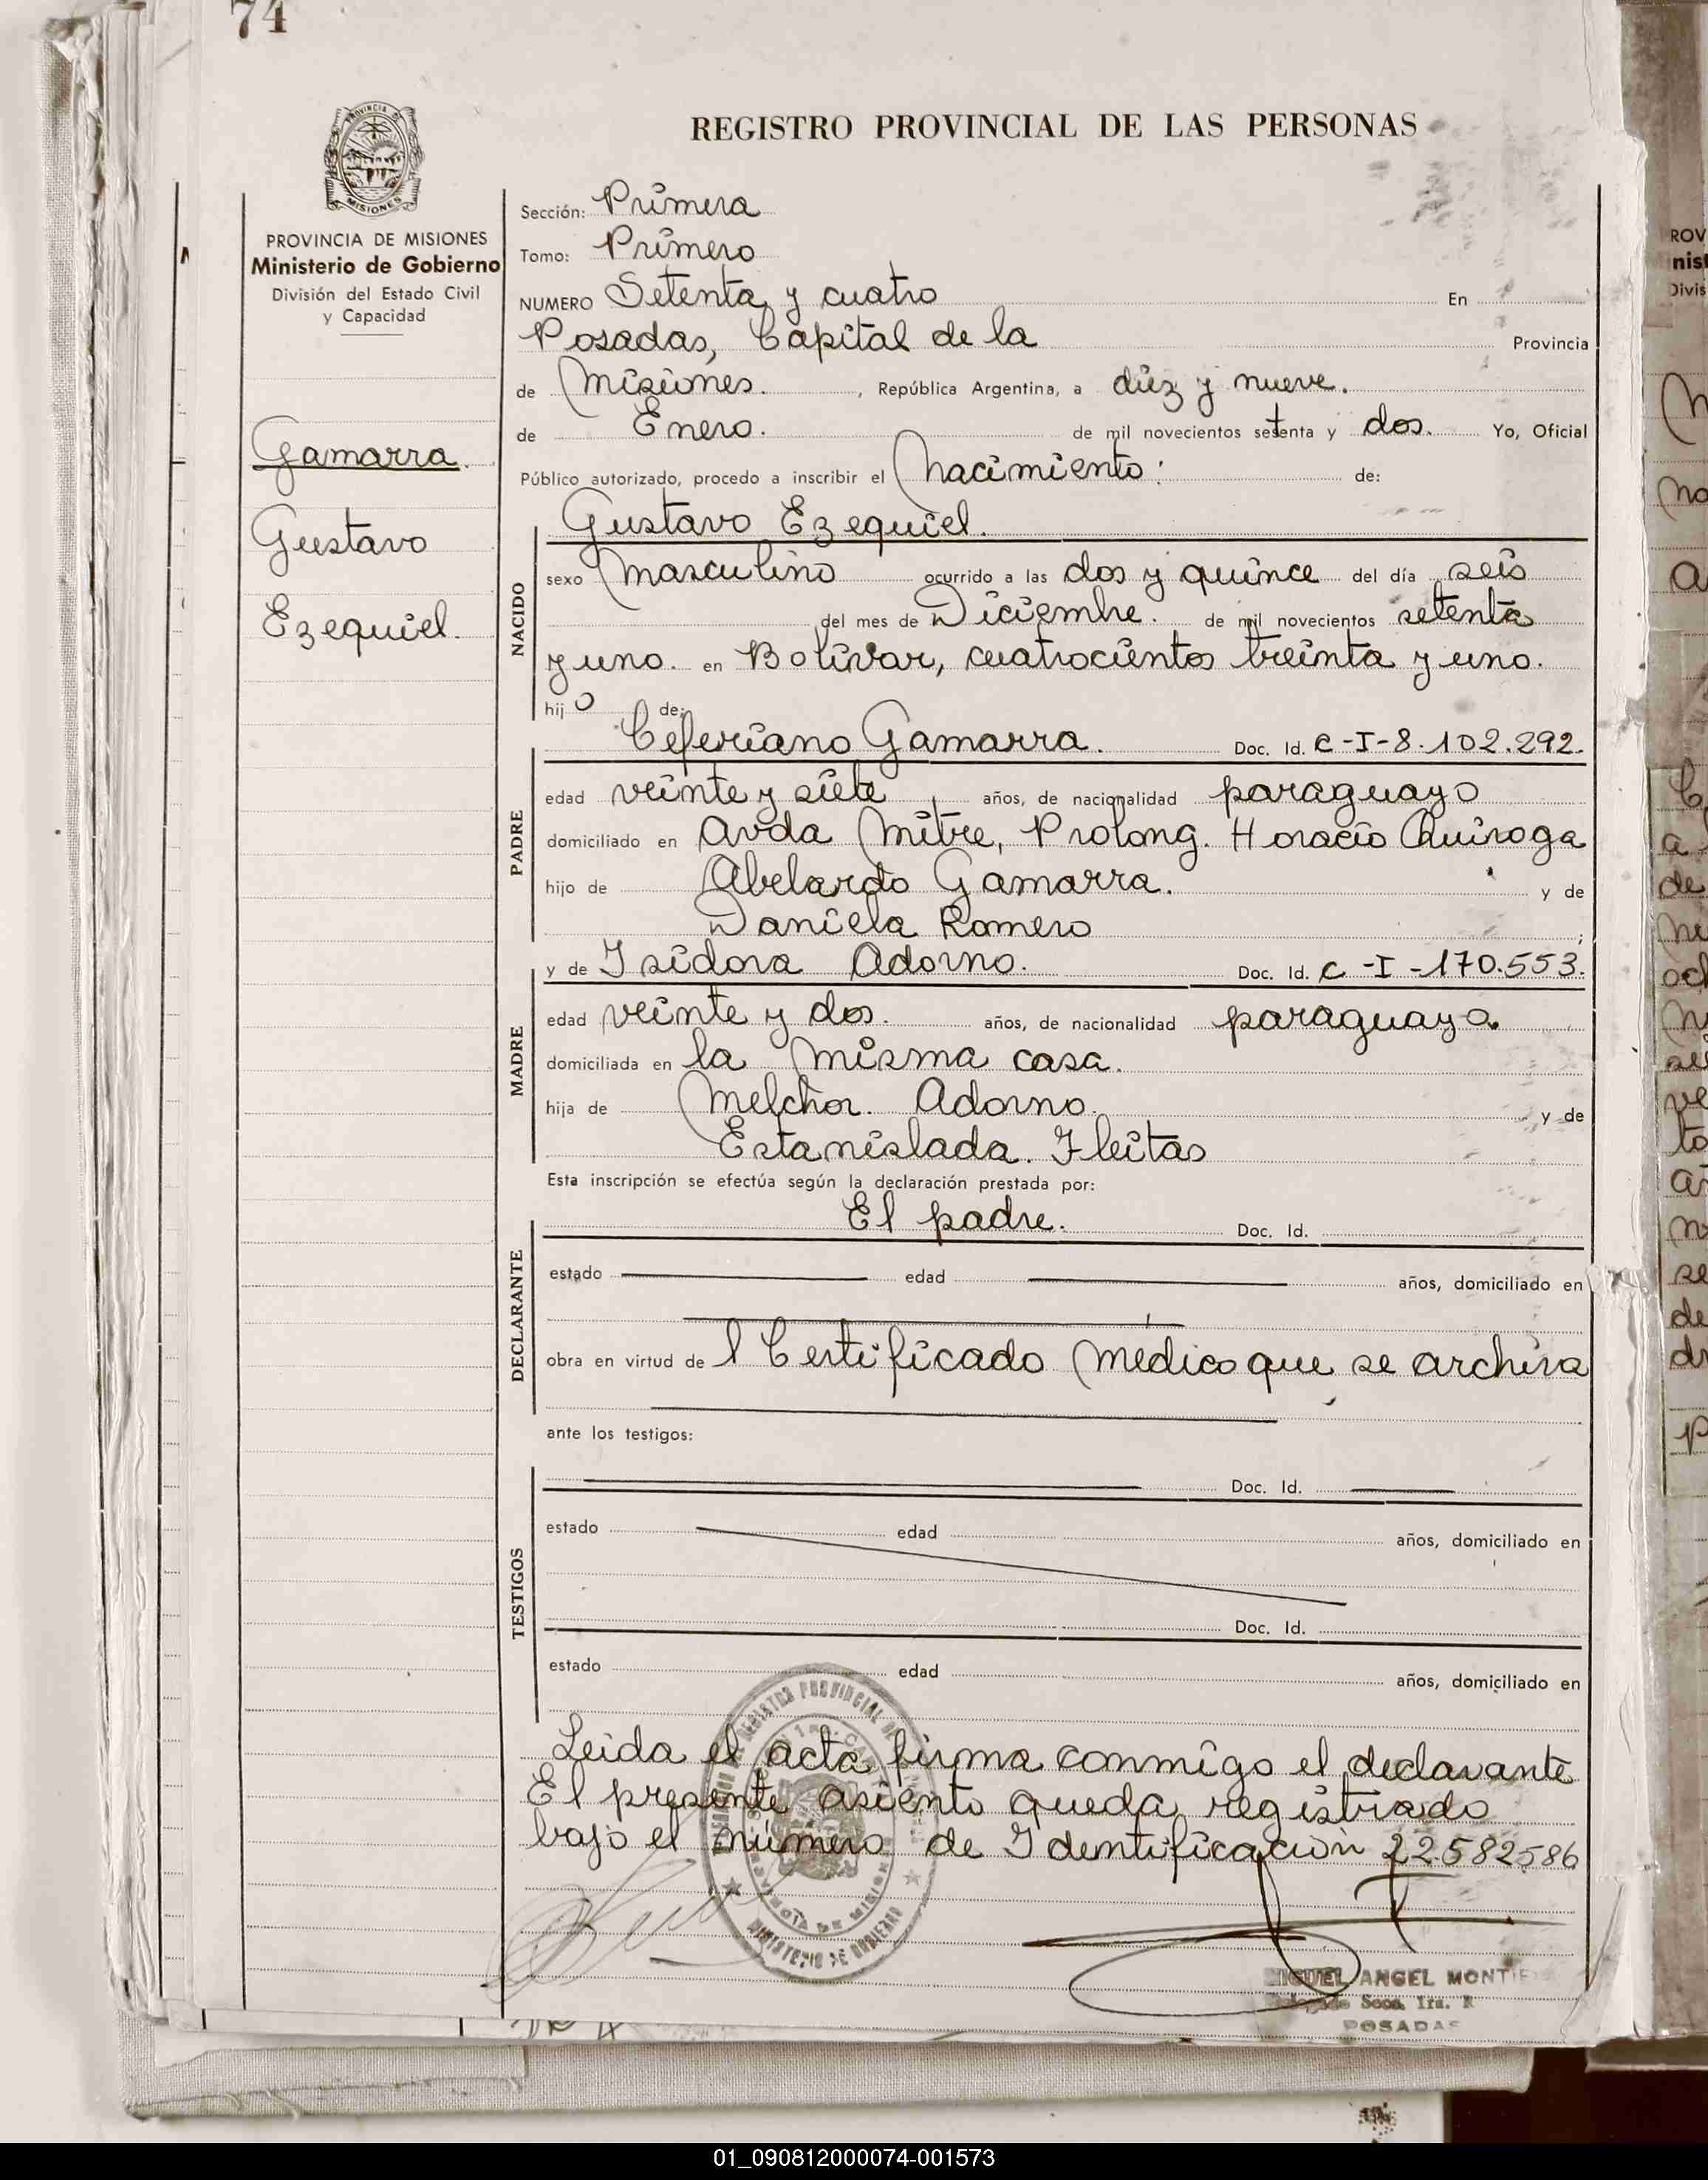 74
PROVINCIA DE
MISIONES
REGISTRO PROVINCIAL DE LAS PERSONAS
PROVINCIA DE MISIONES
Ministerio de Gobierno
División del Estado Civil
y Capacidad
Gamarra.
Gustavo
Ezequiel.
Sección: Primera
Tomo: Primero
NUMERO Setenta y cuatro En
Posadas, Capital de la Provincia
de Misiones. , República Argentina, a diez y nueve.
de Enero. de mil novecientos setenta y dos. Yo, Oficial
Público autorizado, procedo a inscribir el Nacimiento: de:
Gustavo Ezequiel.
NACIDO
sexo Masculino ocurrido a las dos y quince del día seis
del mes de Diciembre. de mil novecientos setenta
y uno. en Bolívar, cuatrocientos treinta y uno.
hijo de:
Ceferiano Gamarra. Doc. Id. C-I-8.102.292.
PADRE
edad veinte y siete años, de nacionalidad paraguayo
domiciliado en Avda Mitre, Prolong. Horacio Quiroga
hijo de Abelardo Gamarra. y de
Daniela Romero ;
y de Isidora Adorno. Doc. Id. C-I-170.553.
MADRE
edad veinte y dos. años, de nacionalidad paraguaya.
domiciliada en la misma casa.
hija de Melchor. Adorno. y de
Estanislada. Fleitas
Esta inscripción se efectúa según la declaración prestada por:
El padre. Doc. Id.
DECLARANTE
estado edad años, domiciliado en
obra en virtud de l Certificado Médico que se archiva
ante los testigos:
Doc. Id.
TESTIGOS
estado edad años, domiciliado en
Doc. Id.
estado edad años, domiciliado en
Leida el acta firma conmigo el declarante
El presente asiento queda registrado
bajo el número de Identificación 22.582586
MINISTERIO DE GOBIERNO
MIGUEL ANGEL MONTIE
Secc. 1ra.
POSADAS
01_090812000074-001573